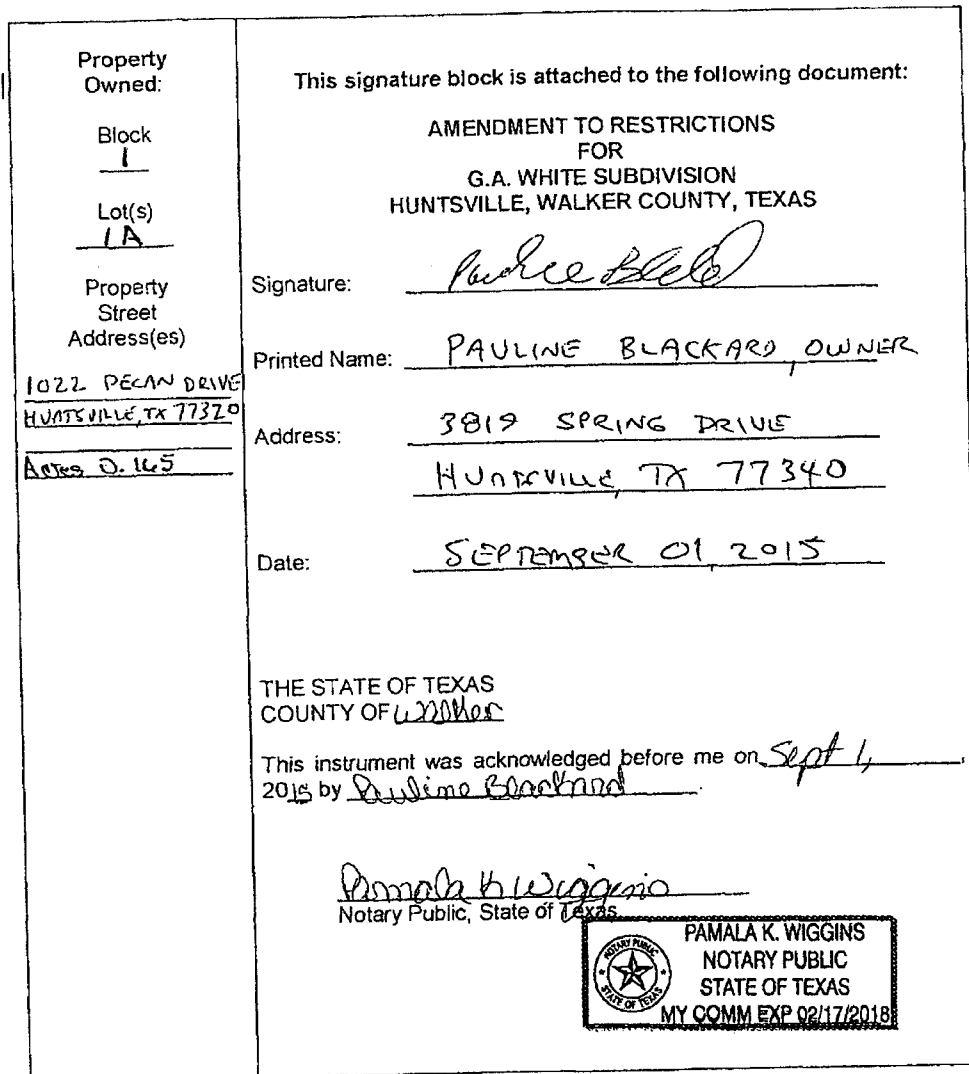 Property
Owned:
Block
1
Lot(s)
1A
Property
Street
Address(es)
1022 PECAN DRIVE
HUNTSVILLE, TX 77320
Acres 0.165
This signature block is attached to the following document:
AMENDMENT TO RESTRICTIONS
FOR
G.A. WHITE SUBDIVISION
HUNTSVILLE, WALKER COUNTY, TEXAS
Signature:
Printed Name: PAULINE BLACKARD, OWNER
Address: 3819 SPRING DRIVE
HUNTSVILLE, TX 77340
Date: SEPTEMBER 01, 2015
THE STATE OF TEXAS
COUNTY OF Walker
This instrument was acknowledged before me on Sept 1,
2015 by Pauline Blackard.
Pamala K Wiggins
Notary Public, State of Texas
PAMALA K. WIGGINS
NOTARY PUBLIC
STATE OF TEXAS
MY COMM EXP 02/17/2018
NOTARY PUBLIC
STATE OF TEXAS